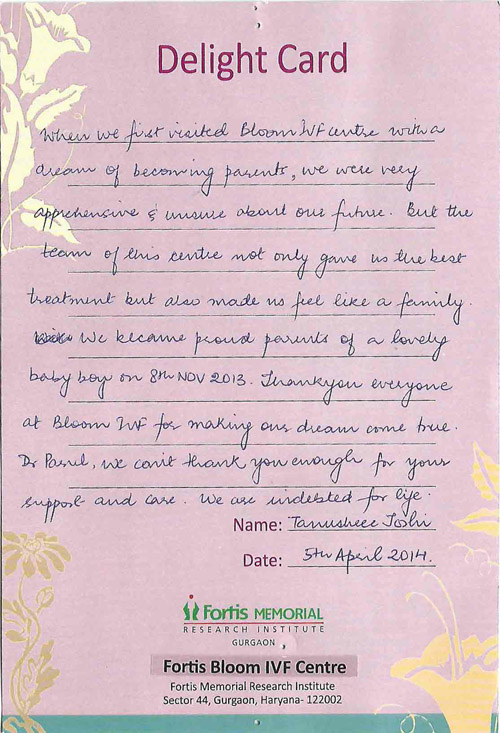 Delight Card
When we first visited Bloom IVF centre with a
dream of becoming parents, we were very
apprehensive & unsure about our future. But the
team of this centre not only gave us the best
treatment but also made us feel like a family.
We became proud parents of a lovely
baby boy on 8th NOV 2013. Thankyou everyone
at Bloom IVF for making our dream come true.
Dr , we can't thank you enough for your
support and care. We are indebted for life.
Name: Tanushree Joshi
Date: 5th April 2014.
Fortis MEMORIAL
RESEARCH INSTITUTE
GURGAON
Fortis Bloom IVF Centre
Fortis Memorial Research Institute
Sector 44, Gurgaon, Haryana- 122002